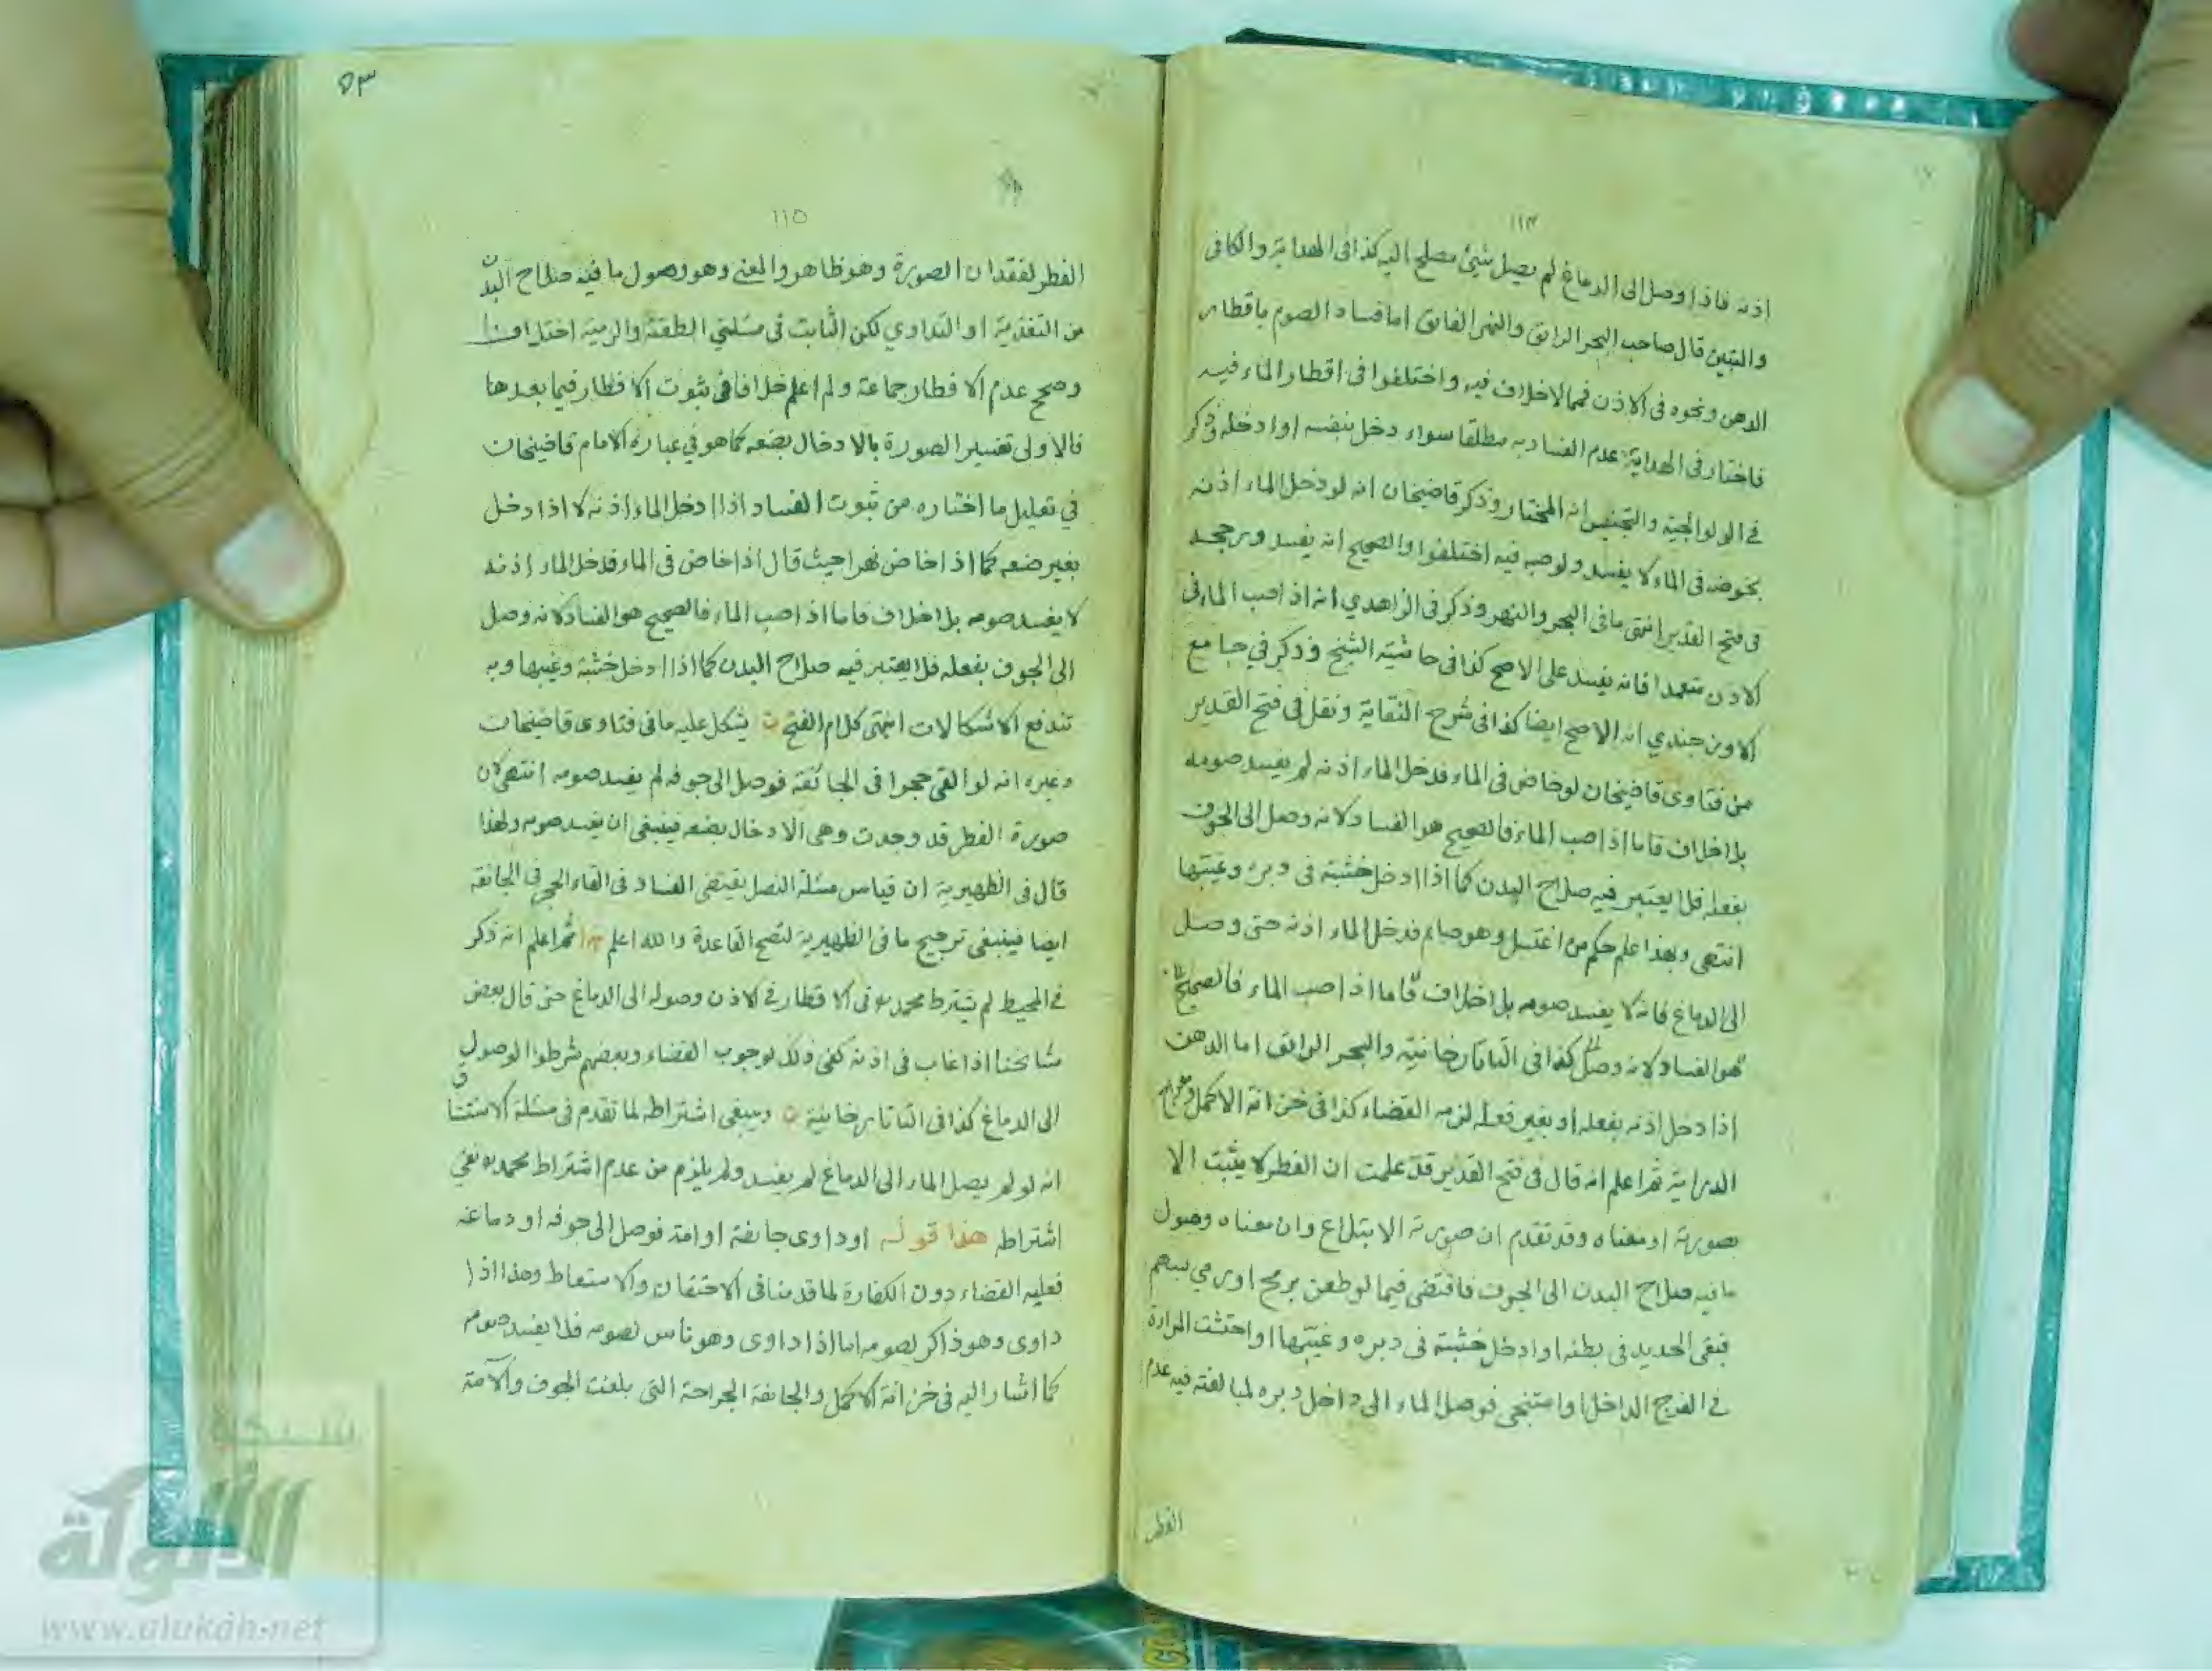 ١١٤
اذنه فاذا وصل الى الدماغ لم يصل شيئ مصلح اليه كذا فى الهداية والكافى
والتبين قال صاحب البحر الرايق والنهر الفايق اما فساد الصوم باقطار
الدهن ونحوه فى الاذن فمما لاخلاف فيه واختلفوا فى اقطار الماء فيه
فاختار فى الهداية عدم الفساد به مطلقا سواء دخل بنفسه او ادخله وذكر
في الولوالجية والتجنيس انه المختار وذكر قاضيخان انه لو دخل الماء اذنه
بخوضه فى الماء لا يفسد ولو صبه فيه اختلفوا والصحيح انه يفسد ورجحه
فى فتح القدير انتهى ما فى البحر والنهر وذكر فى الزاهدي انه اذا صب الماء فى
الاذن متعمدا فانه يفسد على الاصح كذا فى حاشية الشيخ وذكر في جامع
الاوزجندي انه الاصح ايضا كذا فى شرح النقاية ونقل فى فتح القدير
من فتاوى قاضيخان لو خاض فى الماء فدخل الماء اذنه لم يفسد صومه
بلا خلاف فاما اذا صب الماء فالصحيح هو الفساد لانه وصل الى الجوف
بفعله فلا يعتبر فيه صلاح البدن كما اذا ادخل خشبة فى دبره وغيبها
انتهى وبهذا علم حكم من اغتسل وهو صايم فدخل الماء اذنه حتى وصل
الى الدماغ فانه لا يفسد صومه بلا خلاف فاما اذا صب الماء فالصحيح
هو الفساد لانه وصل كذا فى التاتارخانية والبحر الرايق اما الدهن
اذا دخل اذنه بفعله او بغير فعله لزمه القضاء كذا فى خزانة الاكمل ومعراج
الدراية ثم اعلم انه قال فى فتح القدير قد علمت ان الفطر لا يثبت الا
بصورته او معناه وقد تقدم ان صورته الابتلاع وان معناه وصول
ما فيه صلاح البدن الى الجوف فاقتضى فيما لو طعن برمح او رمي بسهم
فبقى الحديد فى بطنه او ادخل خشبة فى دبره وغيبها او احتشت المراءة
في الفرج الداخل او استنجى فوصل الماء الى داخل دبره لمبالغته فيه عدم
الفطر
٥٣
١١٥
الفطر لفقدان الصورة وهو ظاهر والمعنى وهو وصول ما فيه صلاح البدن
من التغذية او التداوي لكن الثابت فى مسئلتي الطعنة والرمية اختلافا
وصحح عدم الافطار جماعة ولم اعلم خلافا فى ثبوت الافطار فيما بعدها
فالاولى تفسير الصورة بالادخال بضعه كما هو في عبارة الامام قاضيخان
في تعليل ما اختاره من ثبوت الفساد اذا ادخل الماء اذنه لا اذا دخل
بغير ضعه كما اذا خاض نهرا حيث قال اذا خاض فى الماء فدخل الماء اذنه
لا يفسد صومه بلا خلاف فاما اذا صب الماء فالصحيح هو الفساد لانه وصل
الى الجوف بفعله فلا يعتبر فيه صلاح البدن كما اذا ادخل خشبة وغيبها وبه
تندفع الاشكالات انتهى كلام الفتح يشكل عليه ما فى فتاوى قاضيخان
وغيره انه لو القى حجرا فى الجائفة فوصل الى جوفه لم يفسد صومه انتهى لان
صورة الفطر قد وجدت وهى الادخال بضعه فينبغى ان يفسد صومه ولهذا
قال فى الظهيرية ان قياس مسئلة النصل يقتضى الفساد فى القاء الحجر فى الجائفة
ايضا فينبغى ترجيح ما فى الظهيرية لتصح القاعدة والله اعلم ثم اعلم انه ذكر
في المحيط لم يشترط محمد فى الاقطار في الاذن وصوله الى الدماغ حتى قال بعض
مشايخنا اذا غاب فى اذنه كفى ذلك لوجوب القضاء وبعضهم شرطوا الوصول
الى الدماغ كذا فى التاتارخانية وينبغى اشتراطه لما تقدم فى مسئلة الاستنشاق
انه لو لم يصل الماء الى الدماغ لم يفسد ولم يلزم من عدم اشتراط محمد نفي
اشتراطه هذا قوله او داوى جائفة او امة فوصل الى جوفه او دماغه
فعليه القضاء دون الكفارة لما قدمنا فى الاحتقان والاستعاط وهذا اذا
داوى وهو ذاكر لصومه اما اذا داوى وهو ناس لصومه فلا يفسد صومه
كما اشار اليه فى خزانة الاكمل والجائفة الجراحة التى بلغت الجوف والآمة
شبكة
الألوكة
www.alukah.net